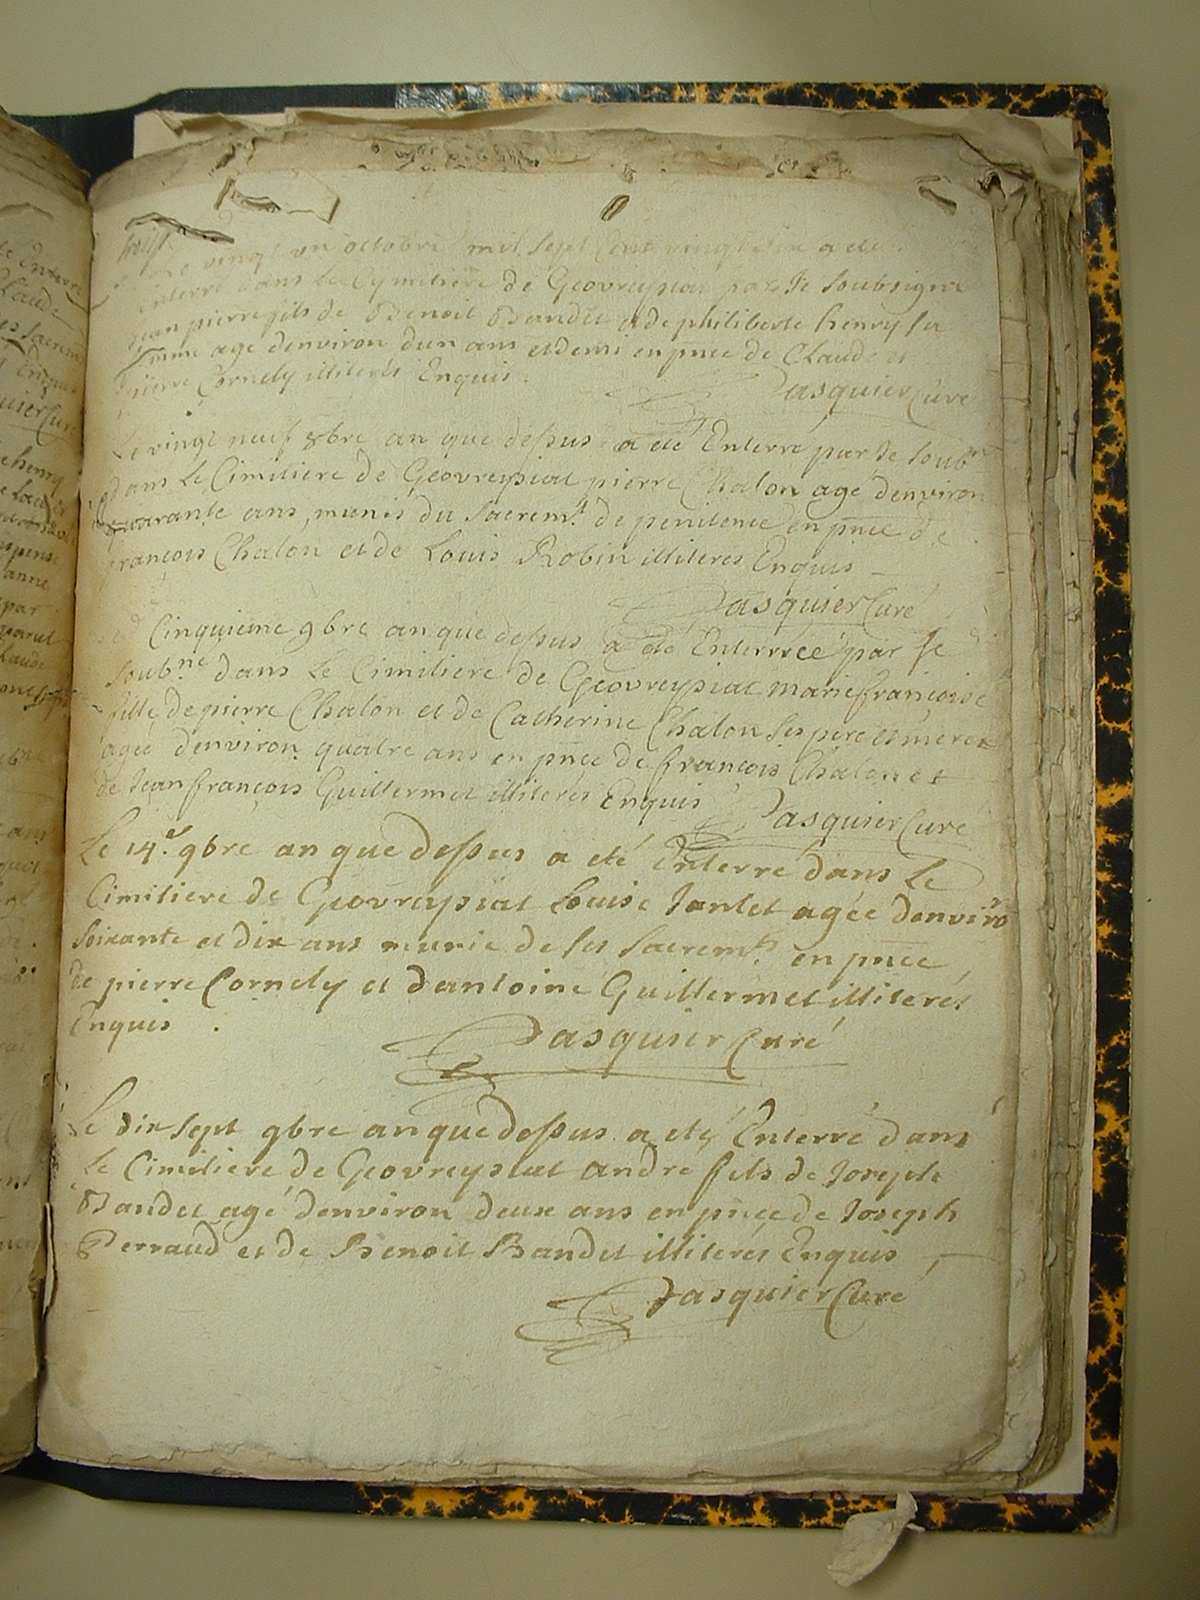 vingt un octobre mil sept cent vingt six a ete
Enterre dans le Cymitiere de Geovreysiat par Je Soubsigné
Jean pierre fils de Benoit Bandet et de philiberte henry sa
femme age denviron dun ans et demi en pnce de Claude et
pierre Cornely illiterés Enquis.
Pasquier Curé
Le vingt neuf 8bre an que dessus a eté Enterré par Je Soubne
dans Le Cimitiere de Geovreysiat pierre Chalon agé denviron
quarante ans, munis du Sacremt. de penitence en pnce de
francois Chalon et de Louis Robin illiteres Enquis
Pasquier Curé
Cinquieme 9bre an que dessus a eté Enterrreé par Je
Soubne. dans Le Cimitiere de Geovreysiat marie francoise
fille de pierre Chalon et de Catherine Chalon ses pere et mere
agée denviron quatre ans en pnce de francois Chalon et
de Jean francois Guillermet illiterés Enquis
Pasquier Curé
Le 14.e 9bre an que dessus a eté Enterre dans Le
Cimitiere de Geovreysiat Louise Jantet agée denviro
Soixante et dix ans munie de ses Sacremts. en pnce
de pierre Cornely et dantoine Guillermet illiterés
Enquis.
Pasquier Curé
Le dix sept 9bre an que dessus a eté Enterré dans
Le Cimitiere de Geovreysiat andré fils de Joseph
Bandet agé denviron deux ans en pnce de Joseph
Perraud et de Benoit Bandet illiterés Enquis
Pasquier Curé